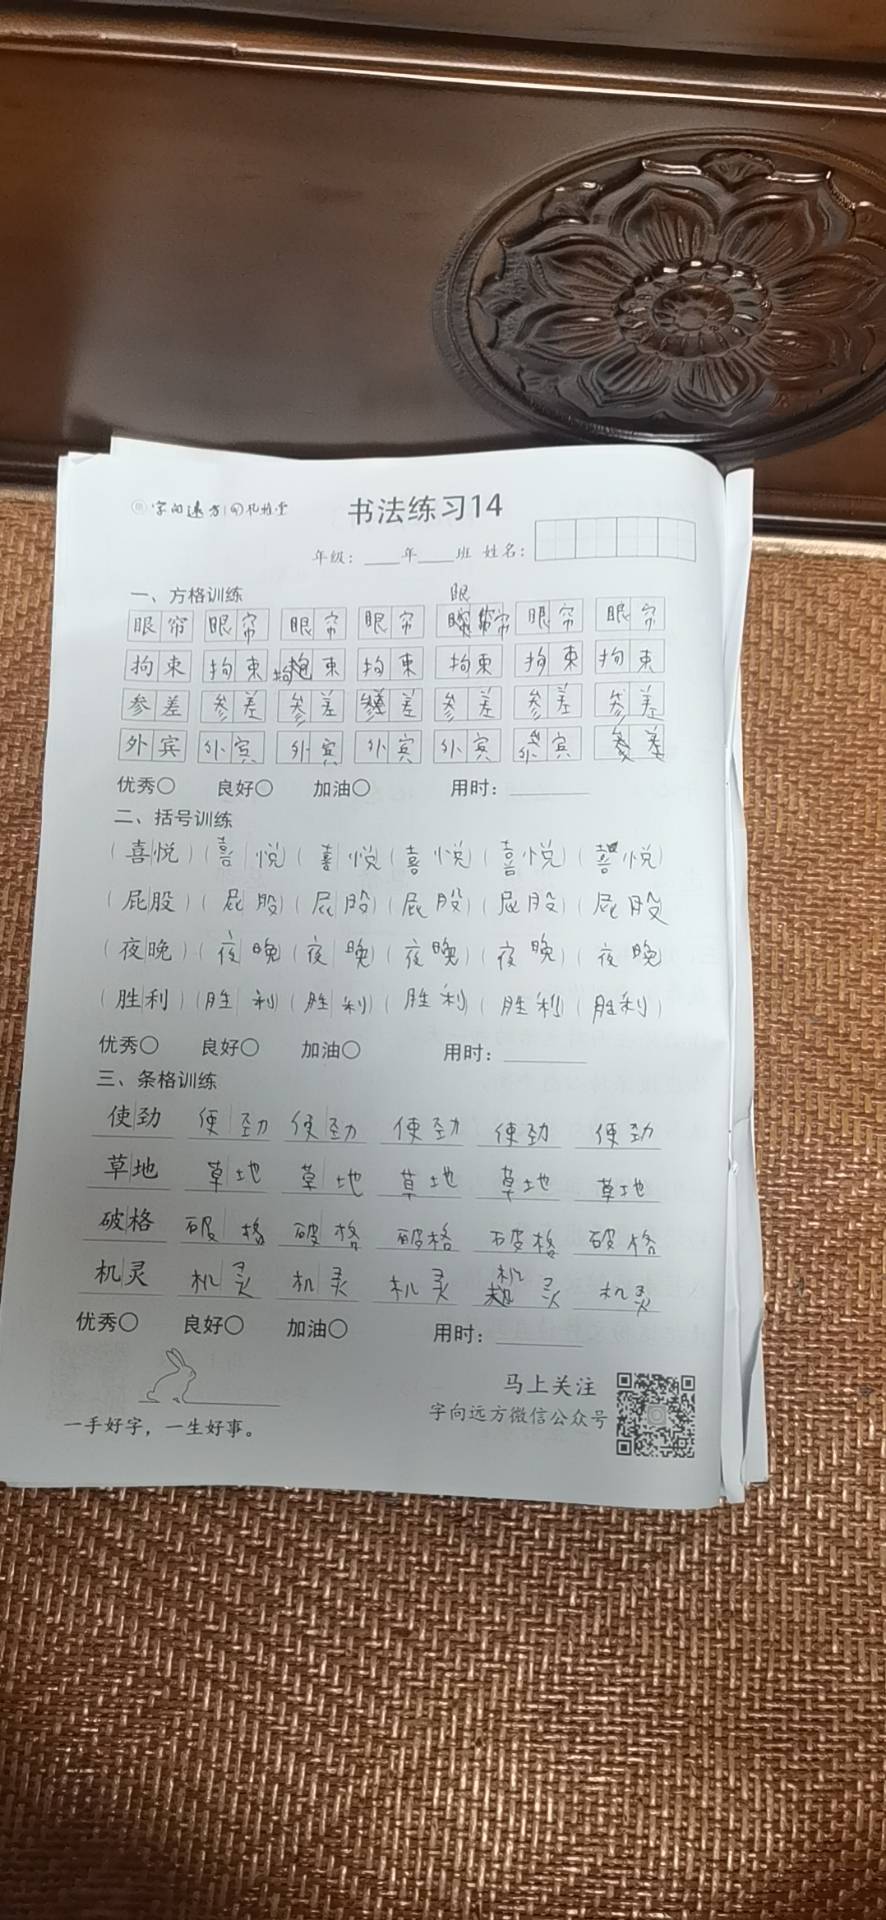 字向远方
书法练习14
年级：____年____班 姓名：
一、方格训练
眼
眼帘 眼帘 眼帘 眼帘 帘 眼帘 眼帘
拘束 拘束 拘束 拘束 拘束 拘束 拘束
参差 参差 参差 差 参差 参差 参差
外宾 外宾 外宾 外宾 外宾 外宾 参差
优秀○ 良好○ 加油○ 用时：________
二、括号训练
（喜悦）（喜悦）（喜悦）（喜悦）（喜悦）（喜悦）
（屁股）（屁股）（屁股）（屁股）（屁股）（屁股）
（夜晚）（夜晚）（夜晚）（夜晚）（夜晚）（夜晚）
（胜利）（胜利）（胜利）（胜利）（胜利）（胜利）
优秀○ 良好○ 加油○ 用时：________
三、条格训练
使劲 使劲 使劲 使劲 使劲 使劲
草地 草地 草地 草地 草地 草地
破格 破格 破格 破格 破格 破格
机灵 机灵 机灵 机灵 机灵 机灵
优秀○ 良好○ 加油○ 用时：________
马上关注
字向远方微信公众号
一手好字，一生好事。